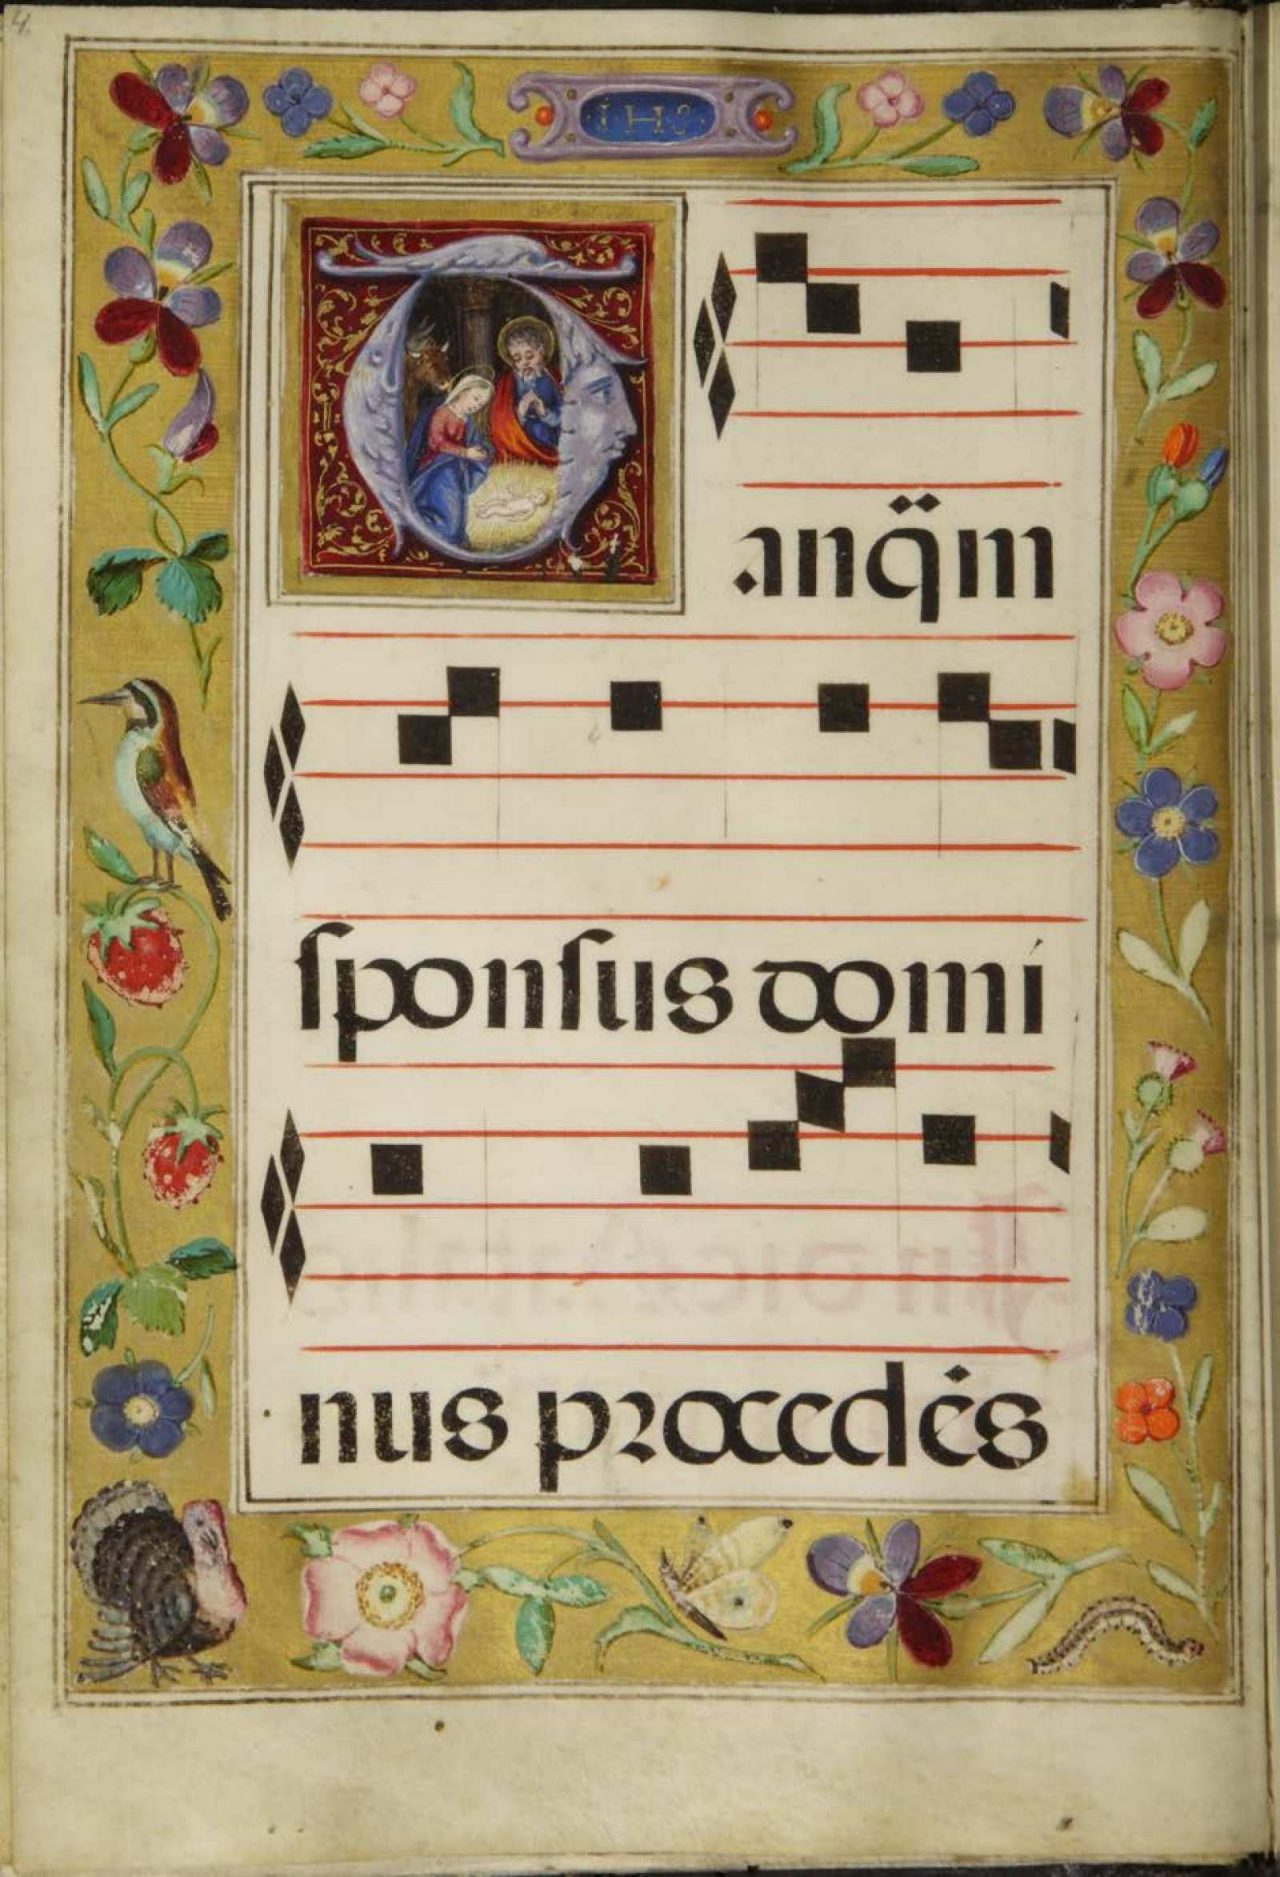 4.
IHS
Tanq̃̈m
ſponſus domi
nus procedẽs